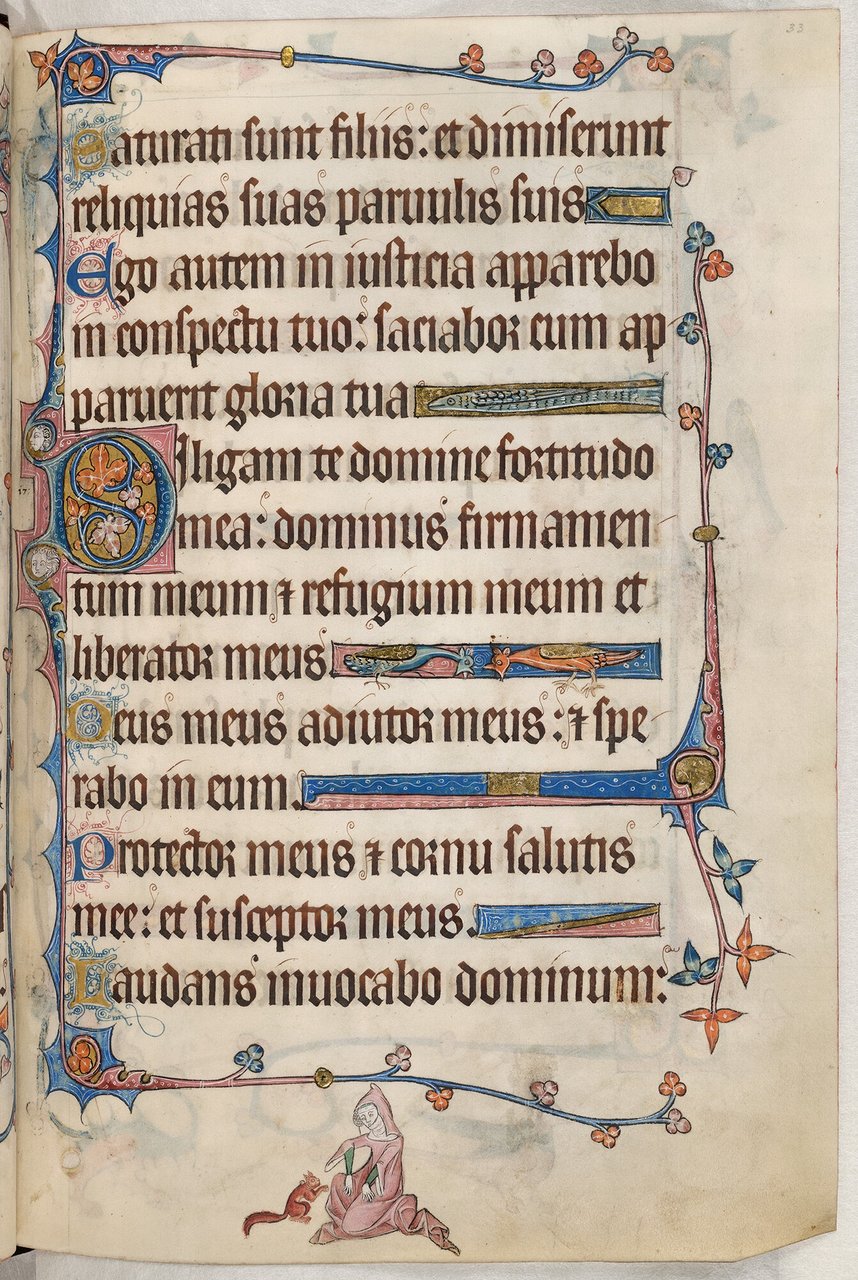 33
Saturati sunt filiis: et dimiserunt
reliquias suas paruulis suis
Ego autem in iusticia apparebo
in conspectu tuo: saciabor cum ap
paruerit gloria tua
17
Diligam te domine fortitudo
mea: dominus firmamen
tum meum ⁊ refugium meum et
liberator meus
Deus meus adiutor meus: ⁊ spe
rabo in eum.
Protector meus ⁊ cornu salutis
mee: et susceptor meus.
Laudans inuocabo dominum: